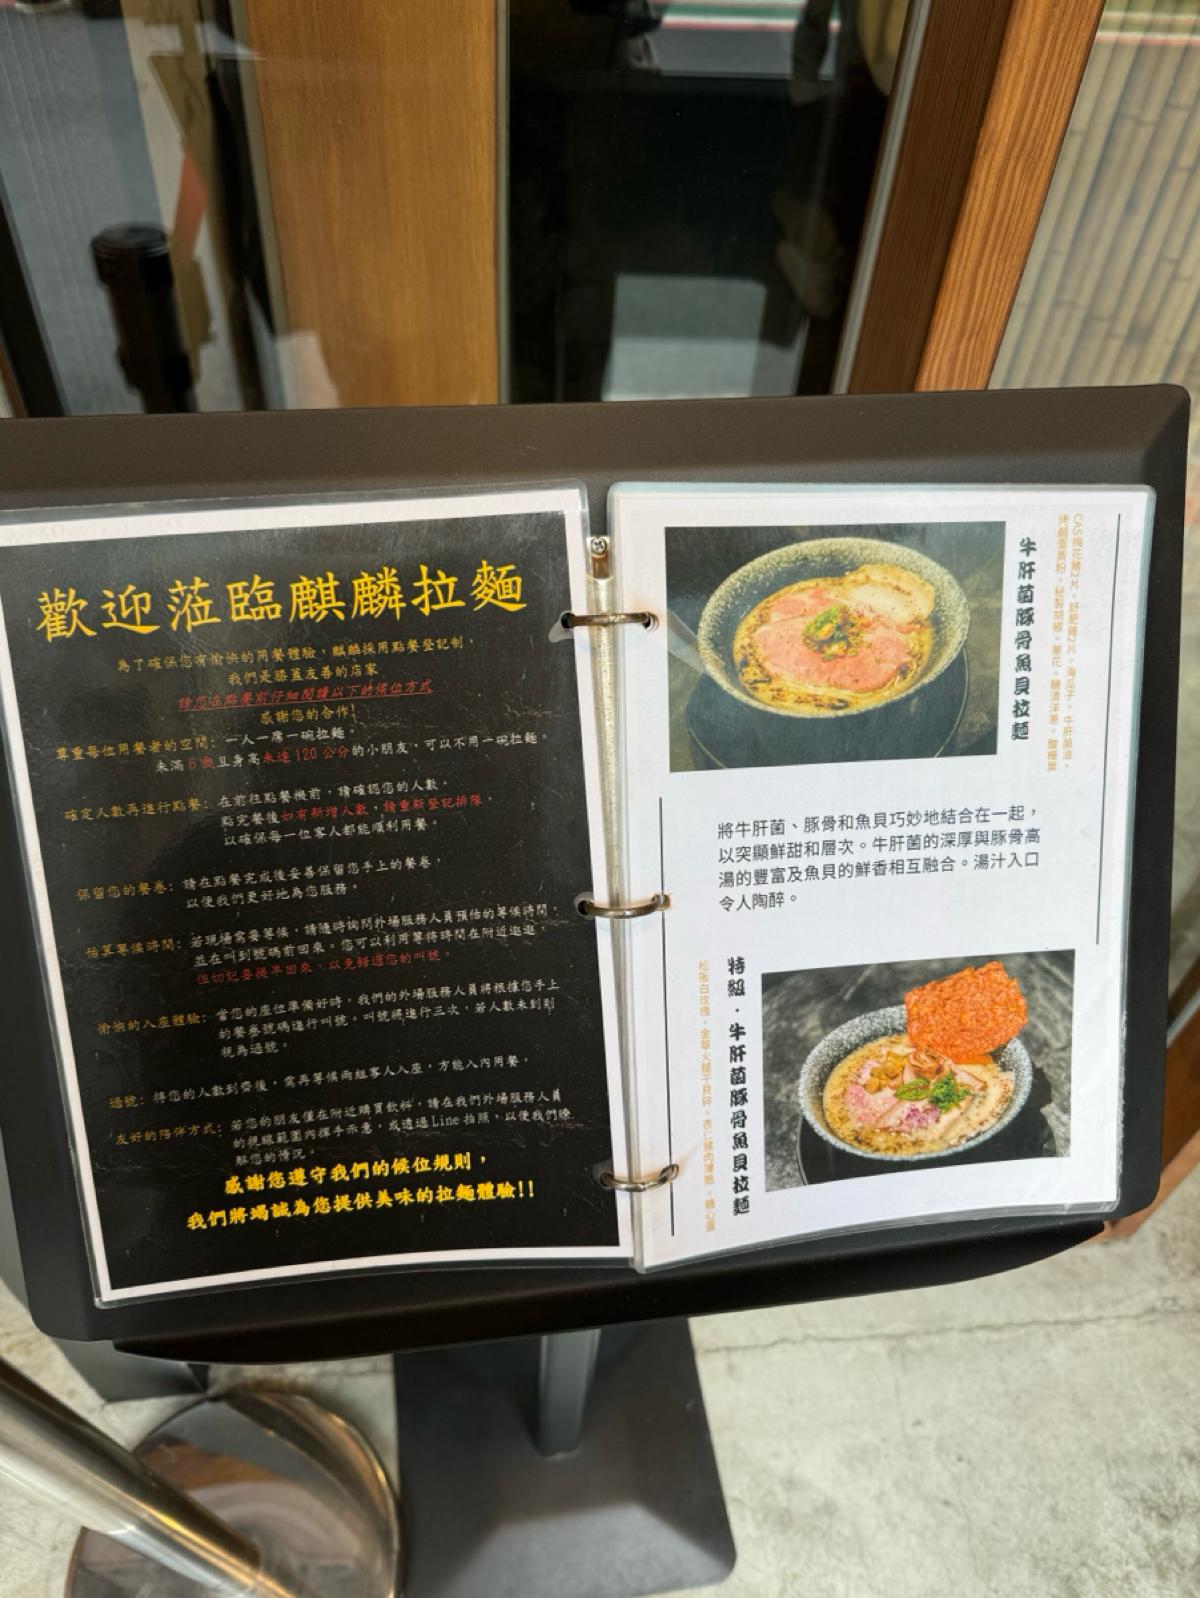 歡迎蒞臨麒麟拉麵
為了確保您有愉快的用餐體驗，麒麟採用點餐登記制，
我們是膝蓋友善的店家
請您在點餐前仔細閱讀以下的候位方式
感謝您的合作！
尊重每位用餐者的空間：一人一席一碗拉麵。
未滿6歲且身高未達120公分的小朋友，可以不用一碗拉麵。
確定人數再進行點餐：在前往點餐機前，請確認您的人數。
點完餐後如有新增人數，請重新登記排隊，
以確保每一位客人都能順利用餐。
保留您的餐卷：請在點餐完成後妥善保留您手上的餐卷，
以便我們更好地為您服務。
估算等候時間：若現場需要等候，請隨時詢問外場服務人員預估的等候時間，
並在叫到號碼前回來。您可以利用等待時間在附近逛逛，
但切記要提早回來，以免錯過您的叫號。
愉快的入座體驗：當您的座位準備好時，我們的外場服務人員將根據您手上
的餐卷號碼進行叫號。叫號將進行三次，若人數未到則
視為過號。
過號：將您的人數到齊後，需再等候兩組客人入座，方能入內用餐。
友好的陪伴方式：若您的朋友僅在附近購買飲料，請在我們外場服務人員
的視線範圍內揮手示意，或透過Line拍照，以便我們瞭
解您的情況。
感謝您遵守我們的候位規則，
我們將竭誠為您提供美味的拉麵體驗!!
牛肝菌豚骨魚貝拉麵
CAS梅花豬2片。舒肥雞2片。海瓜子。牛肝菌油。
烤鹹蛋黃粉。秘製胡椒。蔥花。糖漬洋蔥。酸模葉
將牛肝菌、豚骨和魚貝巧妙地結合在一起，
以突顯鮮甜和層次。牛肝菌的深厚與豚骨高
湯的豐富及魚貝的鮮香相互融合。湯汁入口
令人陶醉。
特級．牛肝菌豚骨魚貝拉麵
松阪白玫瑰。金華火腿干貝碎。杏仁豬肉薄脆。糖心蛋